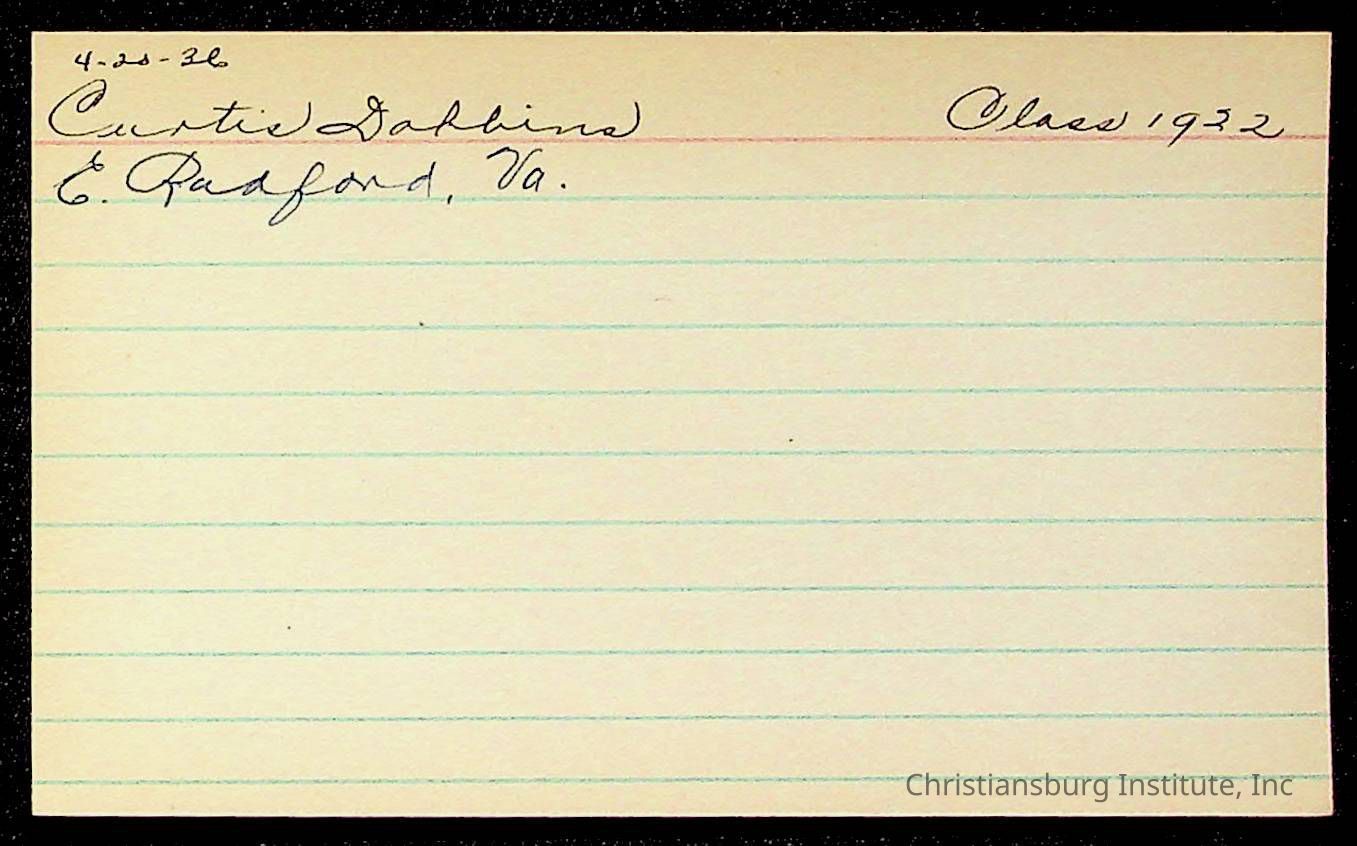 4-20-36
Curtis Dobbins Class 1932
E. Radford, Va.
Christiansburg Institute, Inc